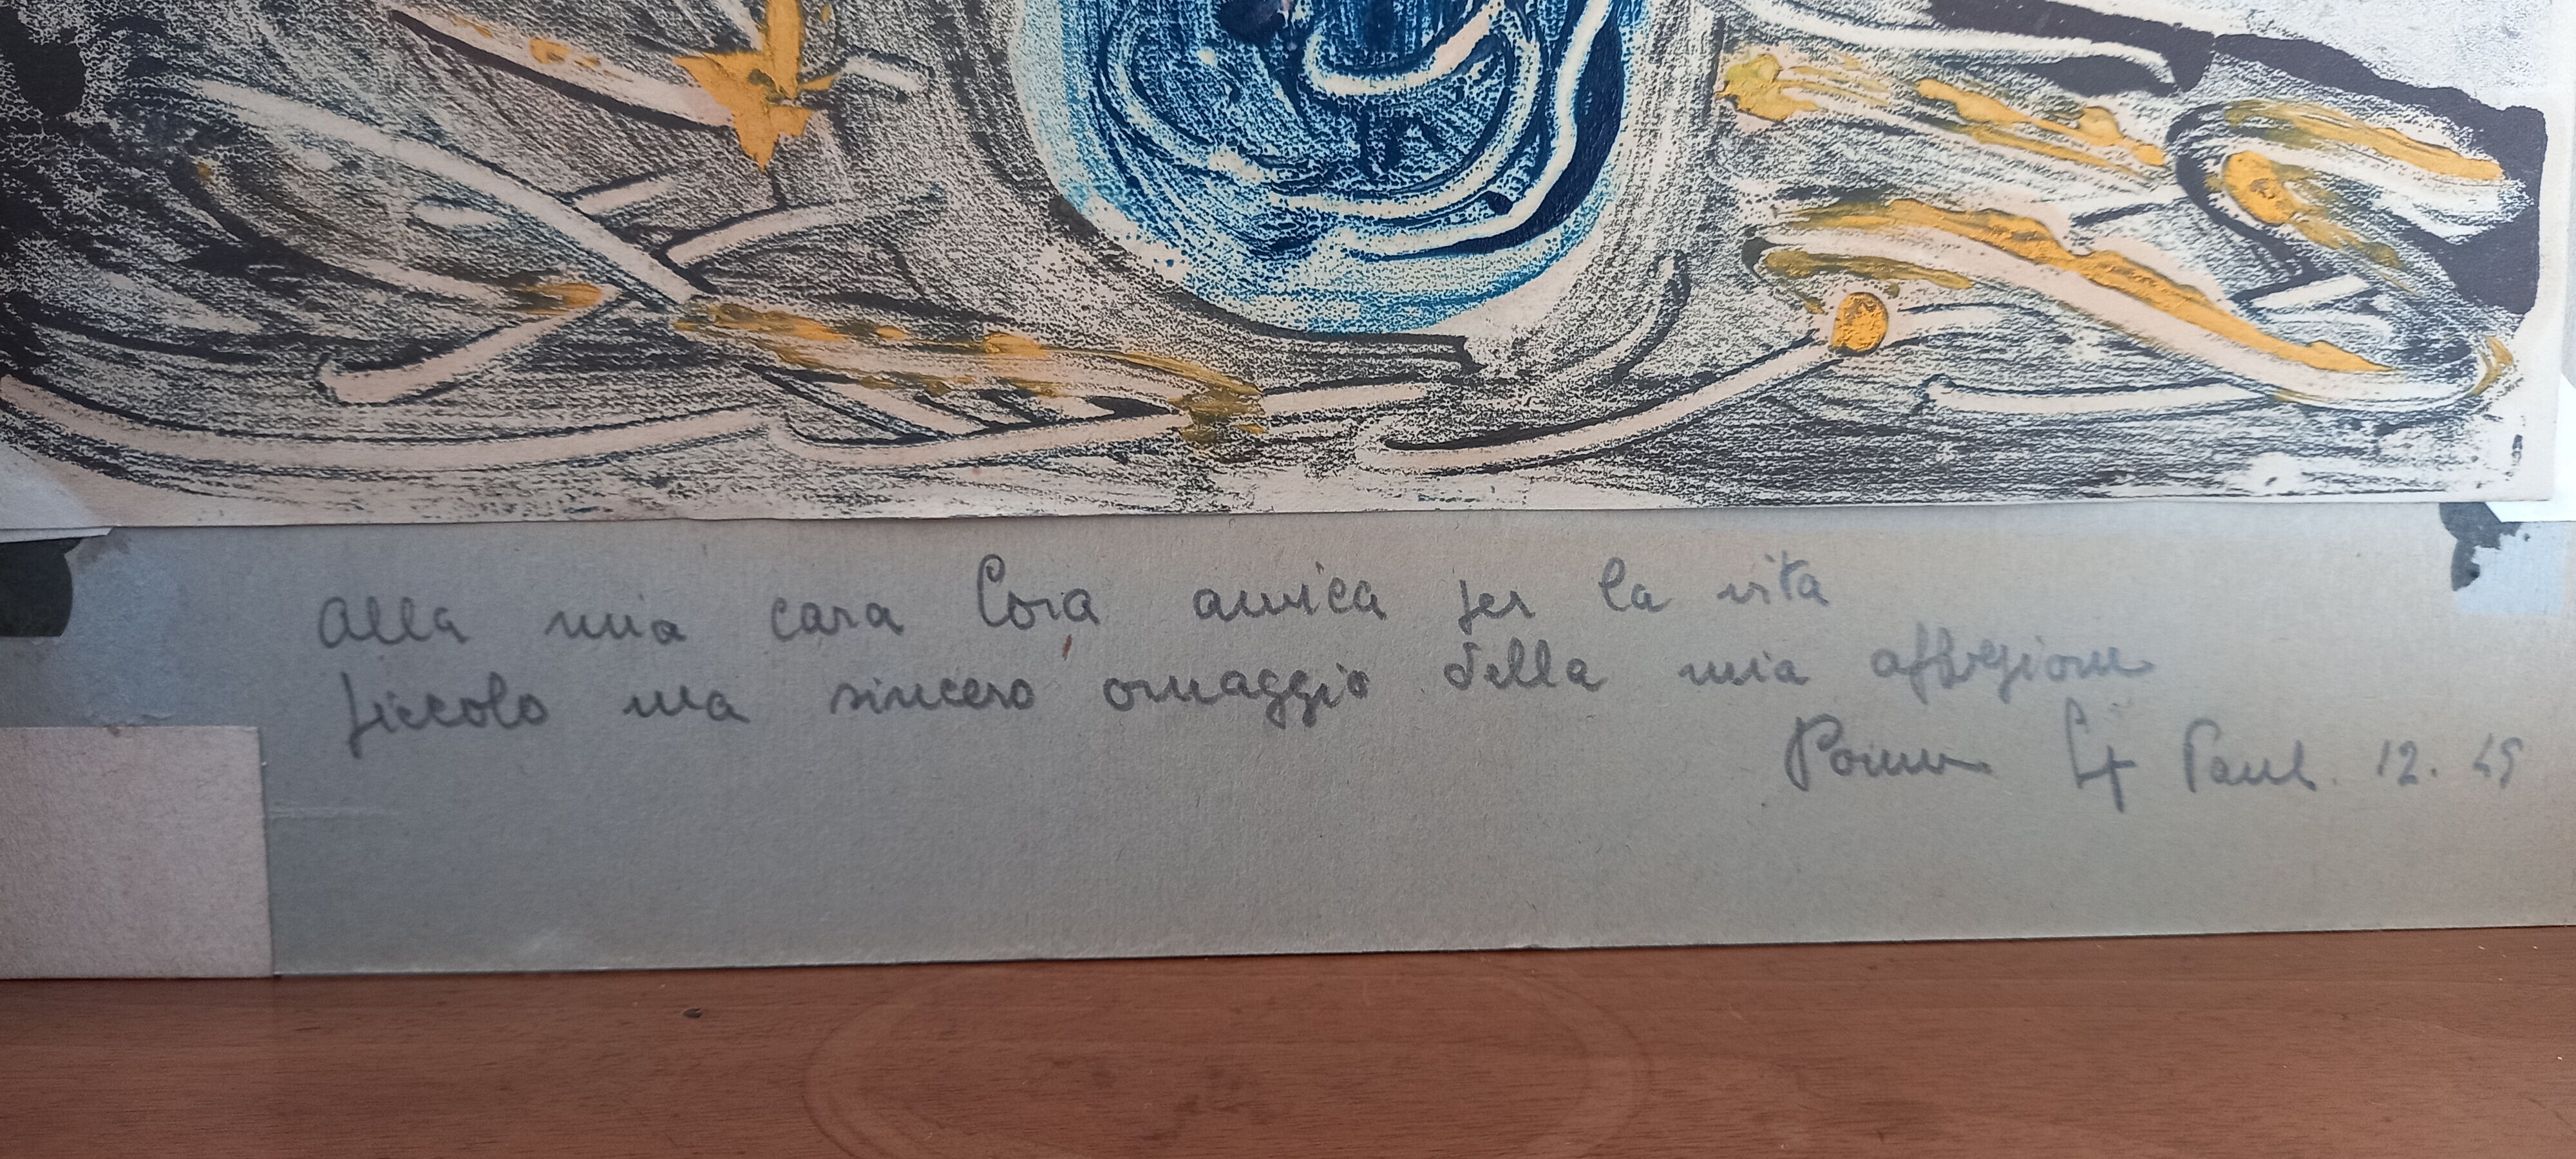 Alla mia cara Cora amica per la vita
piccolo ma sincero omaggio della mia affezione
12. 49